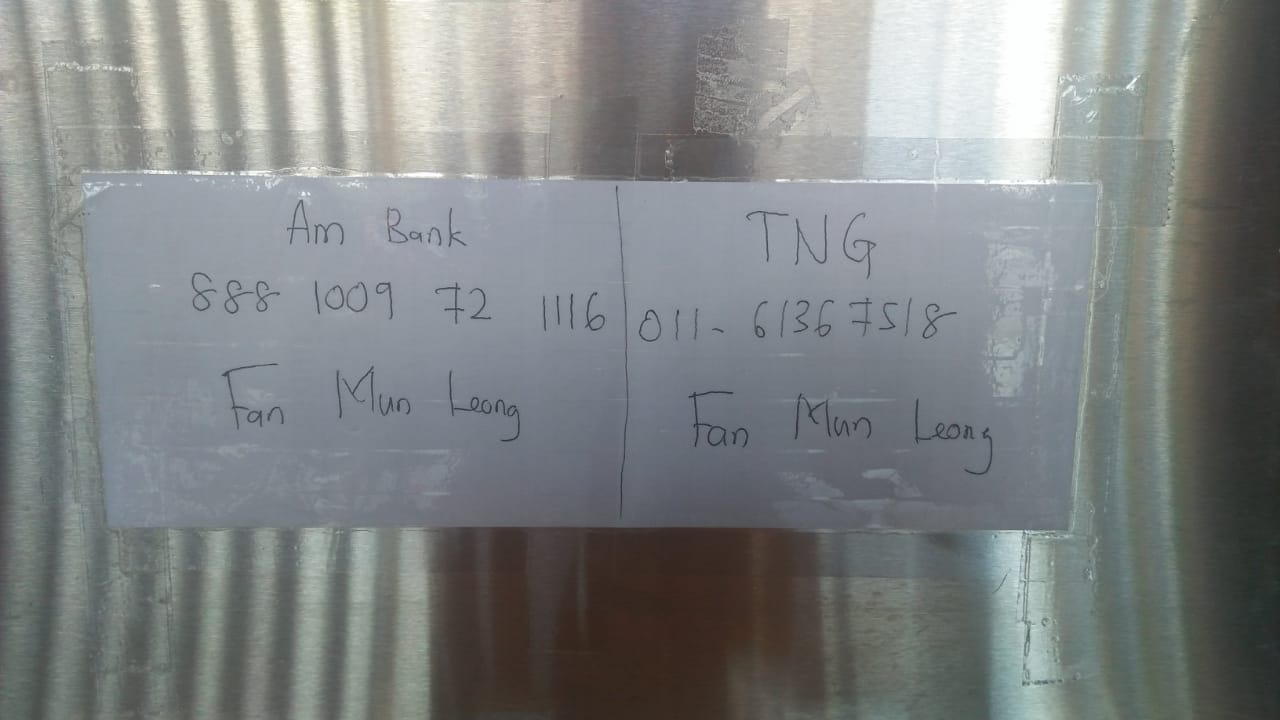 Am Bank
888 1009 72 1116
Fan Mun Leong
TNG
011-61367518
Fan Mun Leong